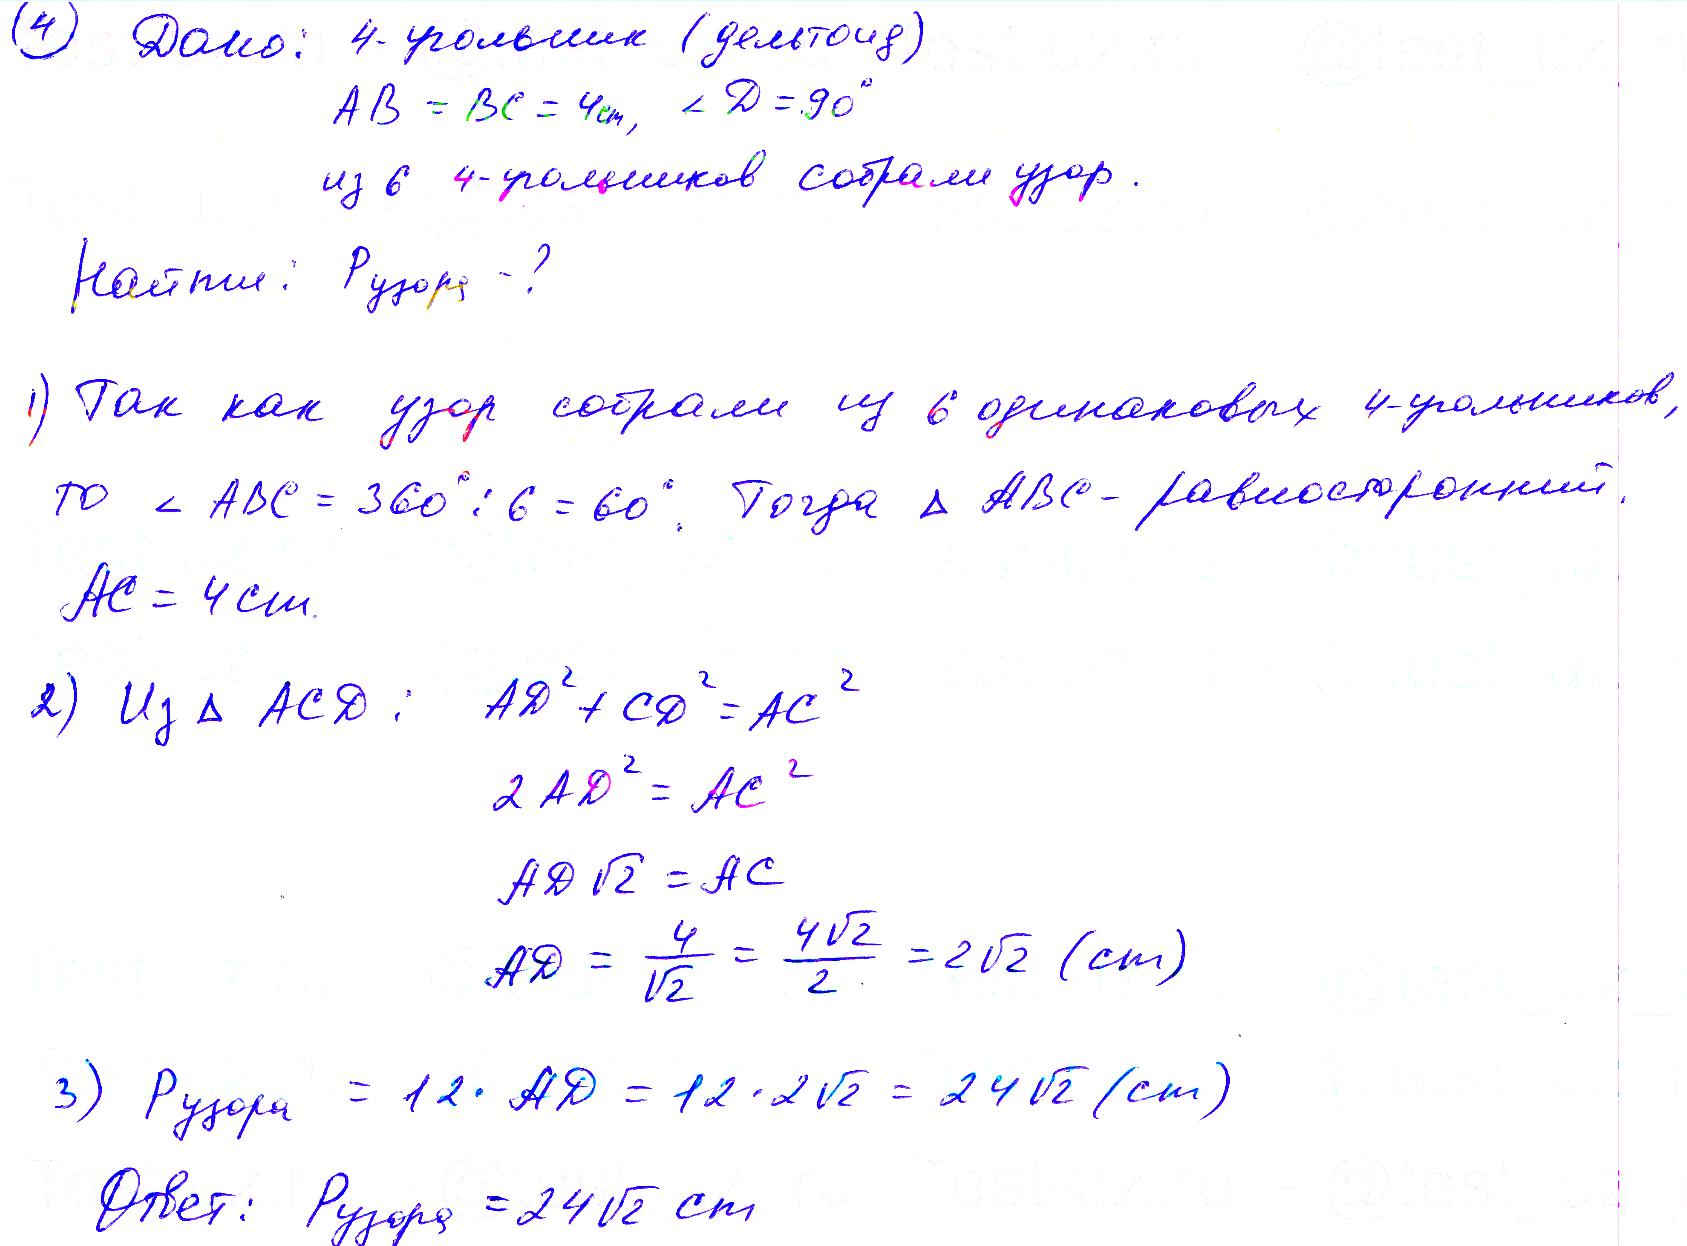 (4) Дано: 4-угольник (дельтоид)
AB = BC = 4cm, ∠D = 90°
из 6 4-угольников собрали узор.
Найти: Pузора - ?
1) Так как узор собрали из 6 одинаковых 4-угольников,
то ∠ABC = 360° : 6 = 60°. Тогда Δ ABC - равносторонний.
AC = 4 cm.
2) Из Δ ACD : AD² + CD² = AC²
2 AD² = AC²
AD √2 = AC
AD = 4/√2 = 4√2/2 = 2√2 (cm)
3) Pузора = 12 · AD = 12 · 2√2 = 24√2 (cm)
Ответ: Pузора = 24√2 cm